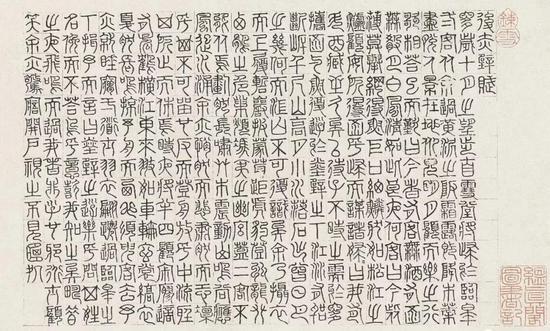 後赤壁賦
是歲十月之望步自雪堂將歸於臨皋
二客從余過黃泥之坂霜露既降木葉
盡脫人景在地仰見明月顧而樂之行
歌相答已而歎曰有客無酒有酒無
肴月白風清如此良夜何客曰今者
薄莫舉網得魚巨口細鱗狀如松江之
鱸顧安所得酒乎歸而謀諸婦婦曰我有
斗酒藏之久矣以待子不時之需於是
攜酒與魚復遊於赤壁之下江流有聲
斷岸千尺山高月小水落石出曾日月
之幾何而江山不可復識矣余乃攝衣
而上履巉巖披蒙茸踞虎豹登虯龍
攀棲鶻之危巢俯馮夷之幽宮蓋二客
不能從焉劃然長嘯艸木震動山鳴谷應
風起水涌余亦悄然而悲肅然而恐凜
乎其不可留也反而登舟放乎中流聽
其所止而休焉時夜將半四顧寂寥適
有孤鶴橫江東來翅如車輪玄裳縞衣
戛然長鳴掠余舟而西也須臾客去余
亦就睡夢一道士羽衣翩躚過臨皋之
下揖余而言曰赤壁之遊樂乎問其姓
名俛而不答嗚呼噫嘻我知之矣疇昔
之夜飛鳴而過我者非子也耶道士顧
笑余亦驚寤開戶視之不見其處